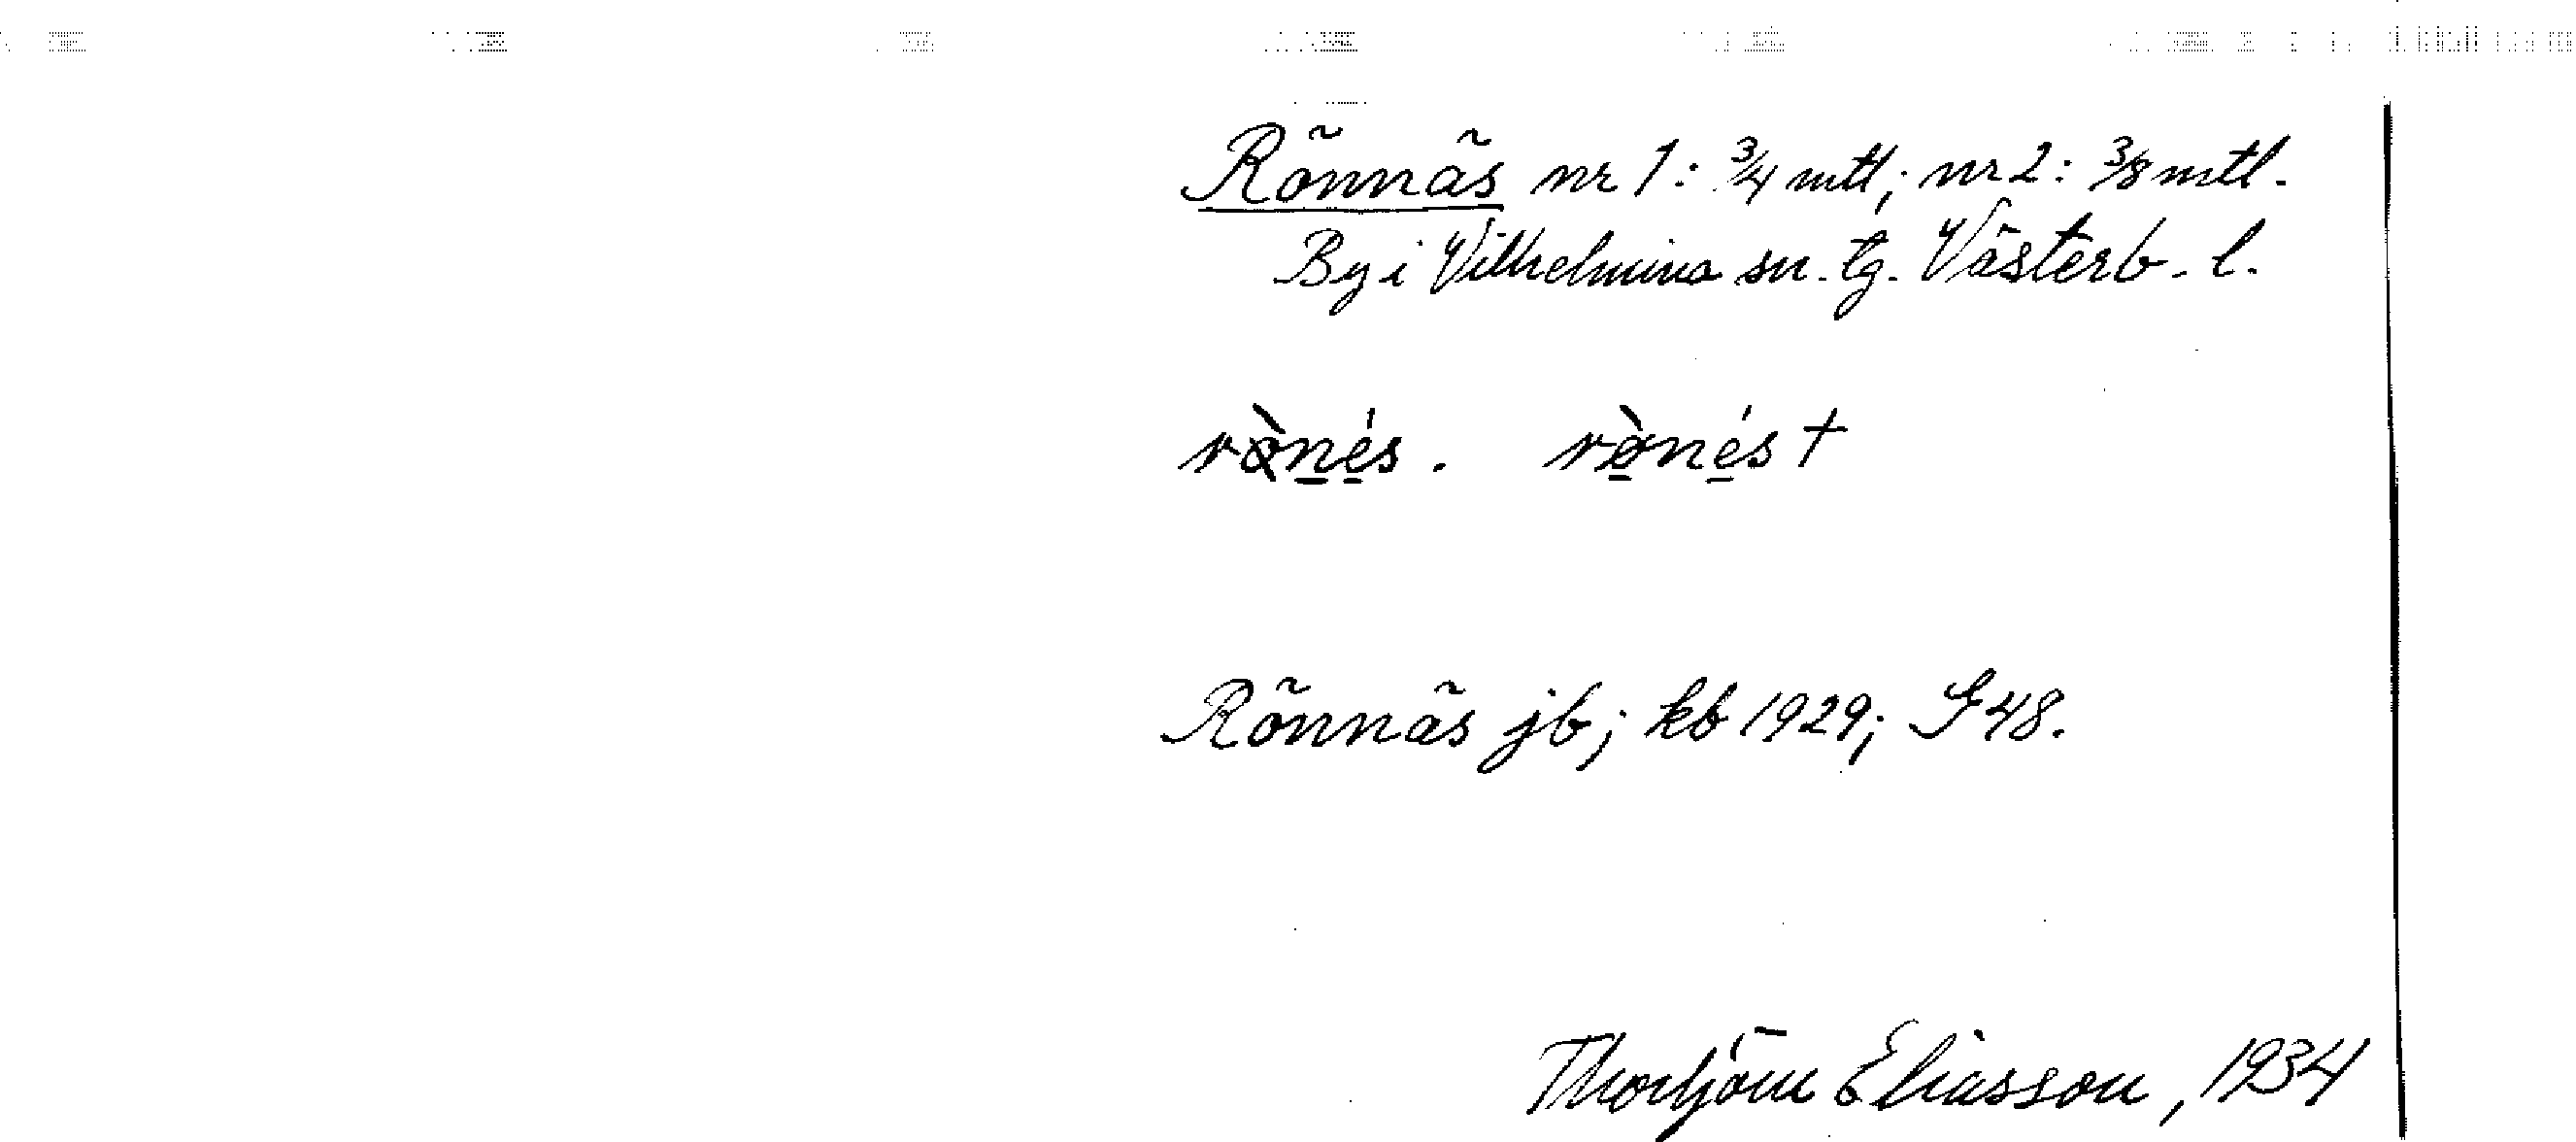 Rönnäs nr 1: 3/4 mtl; nr 2: 3/8 mtl.
By i Vilhelmina sn. tg. Västerb. l.
rò̱nés. rò̱nés †
Rönnäs jb; kb 1929; G 48.
Thorbjörn Eliasson, 1934